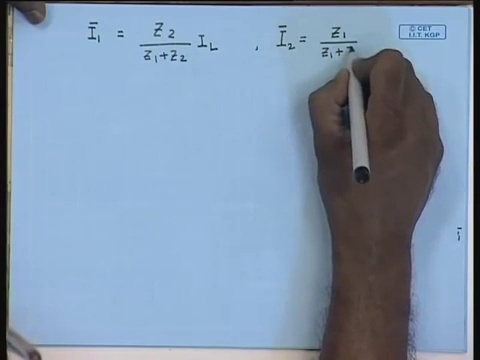 Ī₁ = Z₂ / (Z₁+Z₂) I_L , Ī₂ = Z₁ / (Z₁+
© CET
I.I.T. KGP